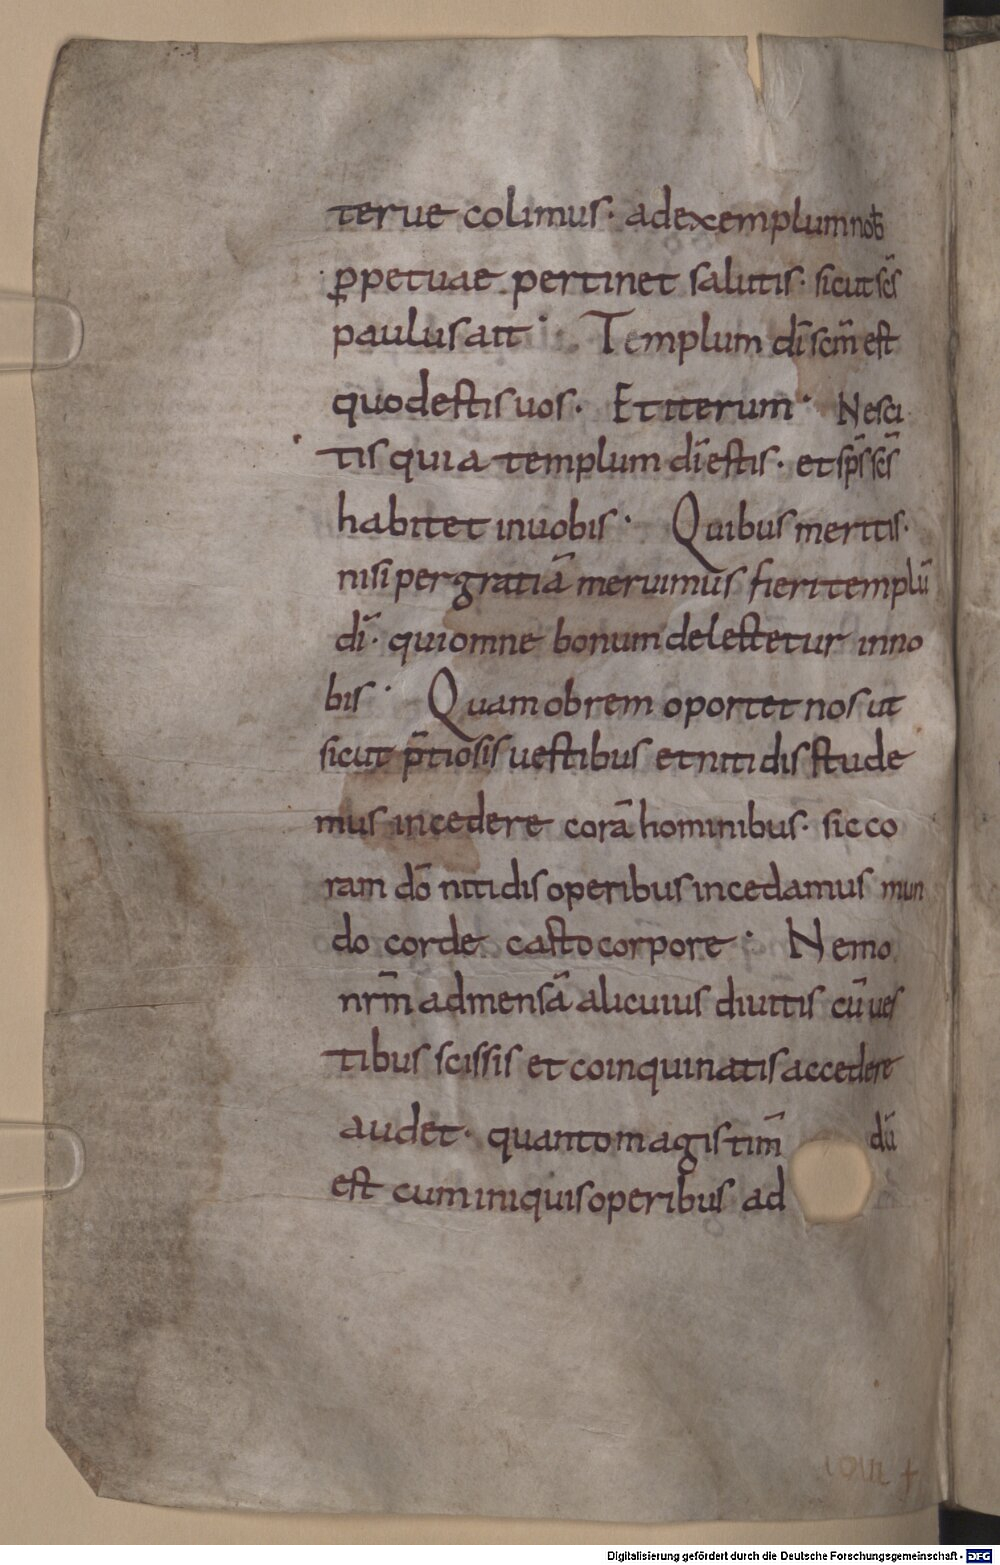 terue colimus· adexemplumnob̄
p̲petuae pertinet salutis· sicut sc̄s
paulus ait· Templum dī scm̄ est
quod estis uos· Et iterum· Nesci
tis quia templum dī estis· et sp̄s sc̄s
habitet in uobis· Quibus meritis·
nisi per gratiā meruimus fieri templū
dī· qui omne bonum delectetur in no
bis· Quam obrem oportet nos ut
sicut p̄tiosis uestibus et nitidis stude
mus incedere corā hominibus· sic co
ram dō nitidis operibus incedamus mun
do corde casto corpore· Nemo
nrm̄ ad mensā alicuius diuitis cū ues
tibus scissis et coinquinatis accedere
audet· quanto magis tim̄ dū
est cum iniquis operibus ad
Digitalisierung gefördert durch die Deutsche Forschungsgemeinschaft - DFG